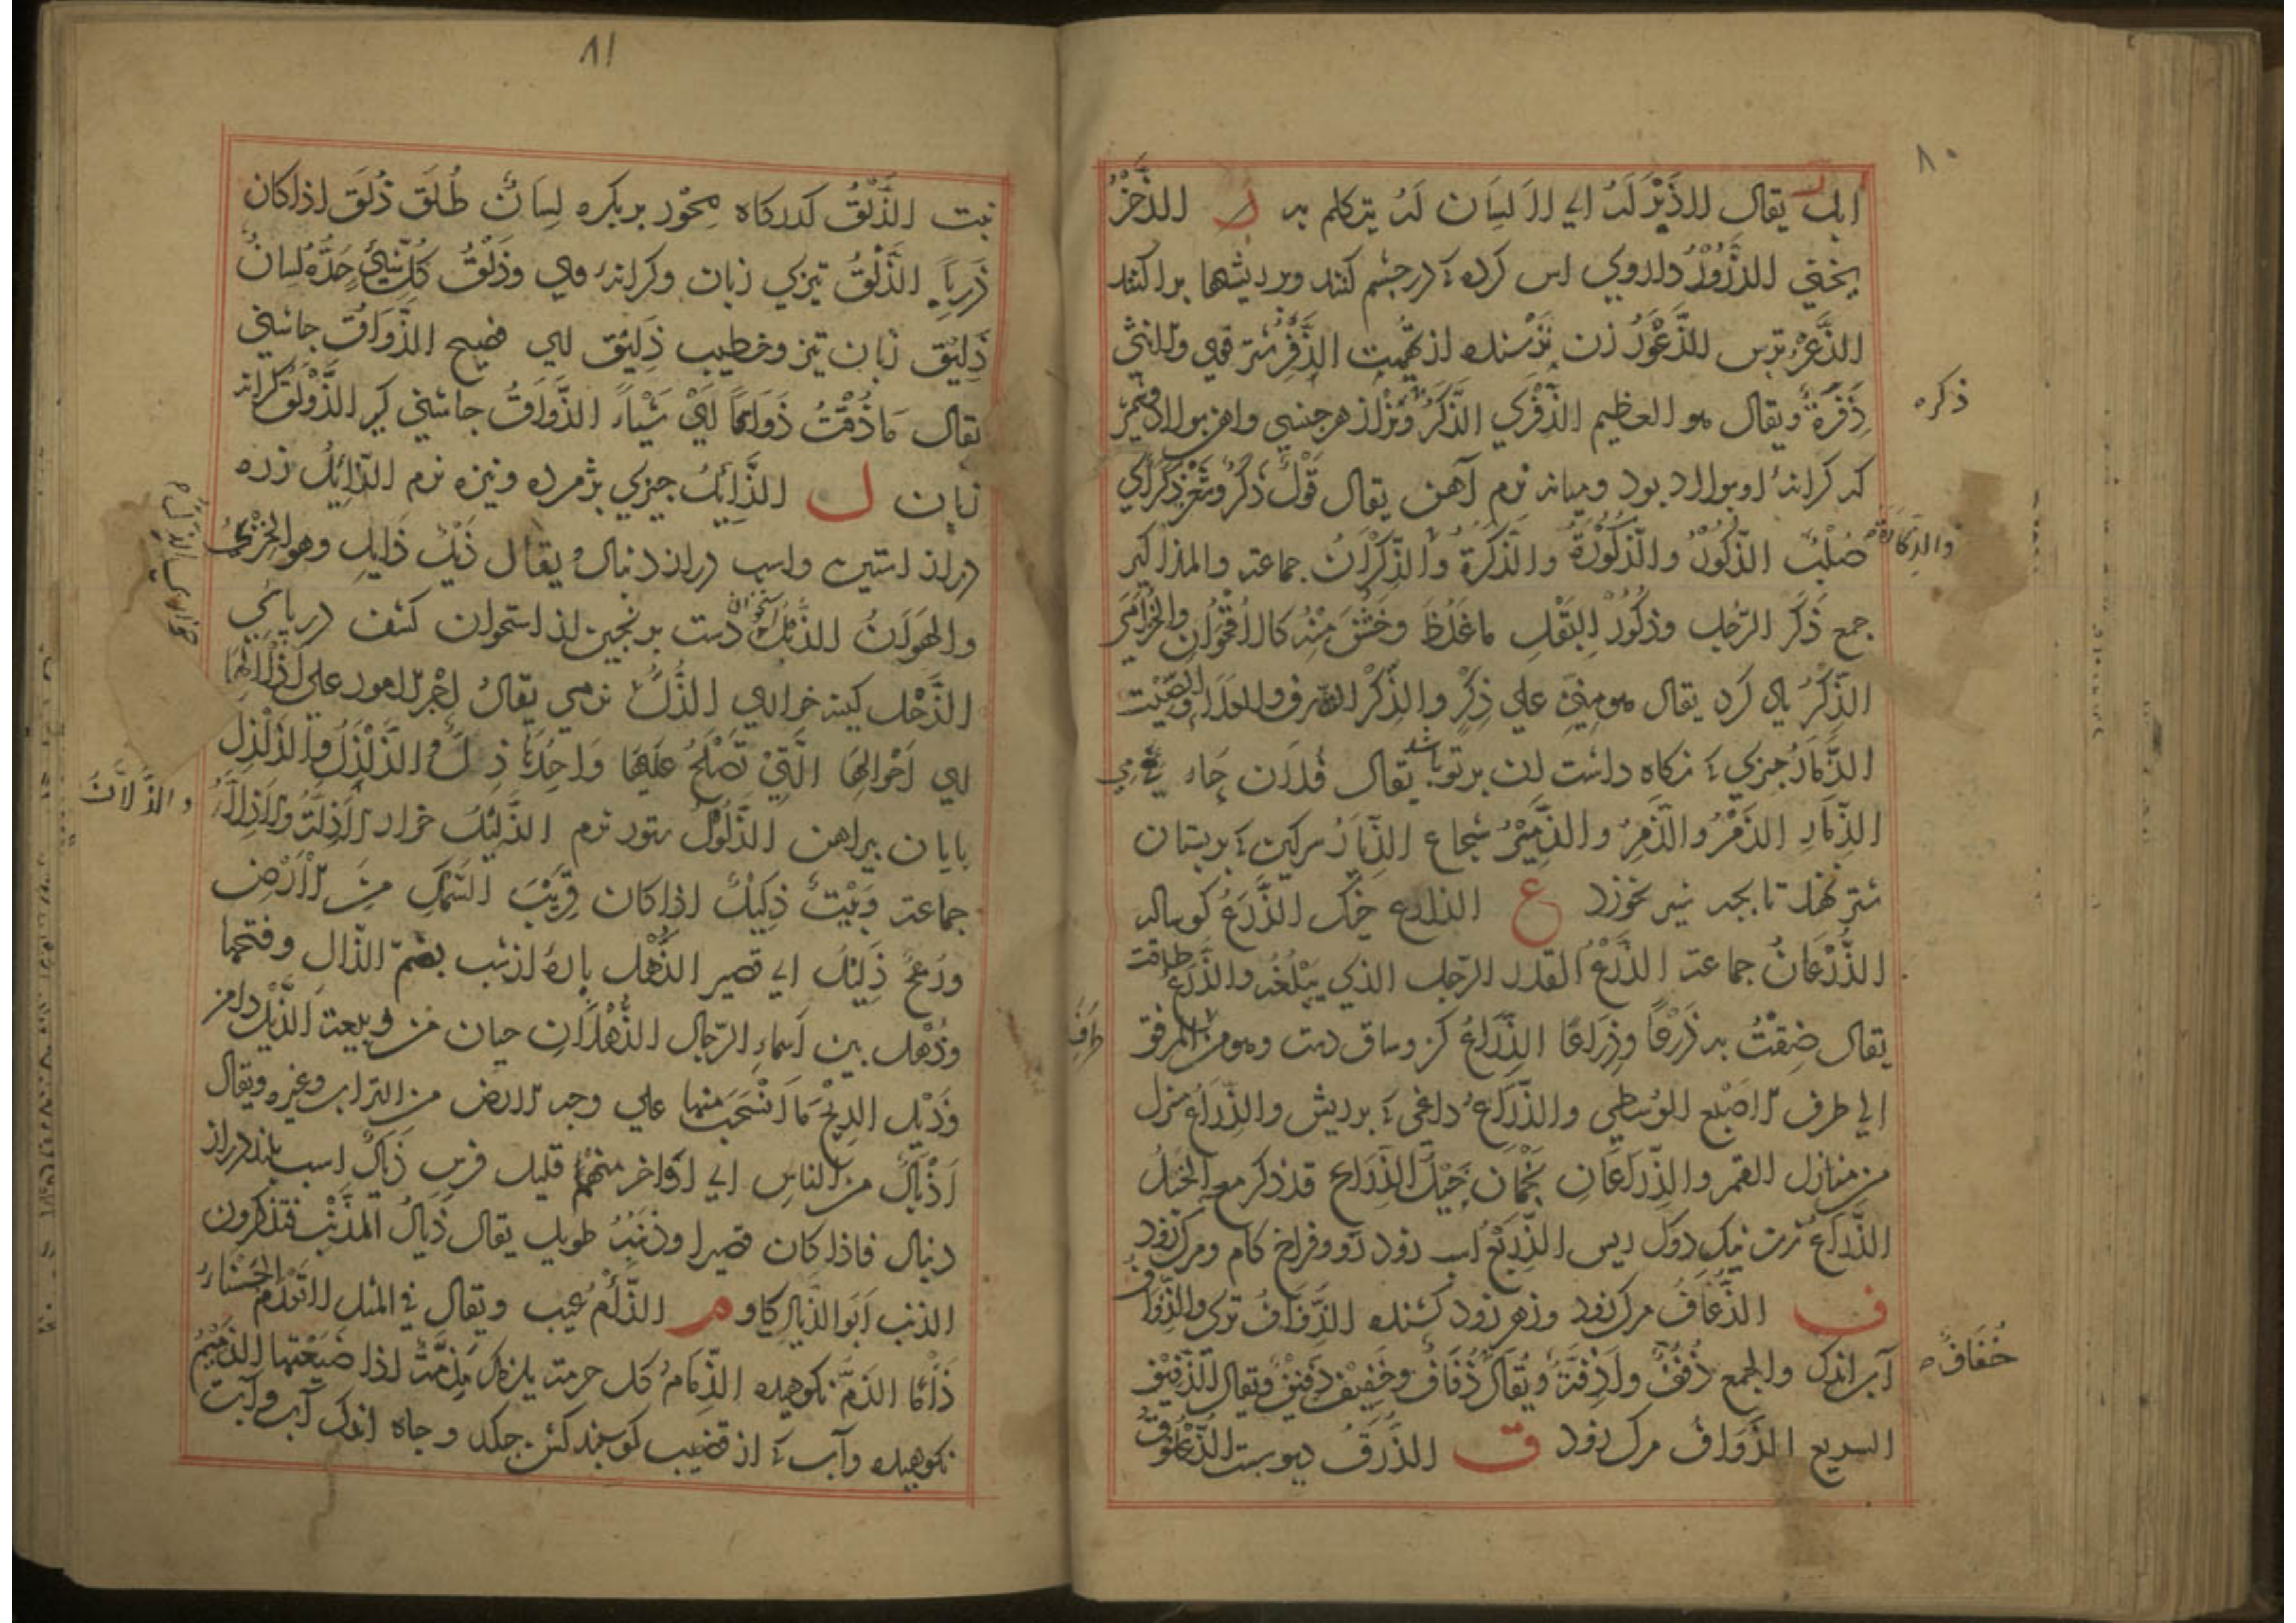 ٨٠
ابل يقال للذبر له اي لا لسان له يتكلم به ر الذخر
يخني الذرور داروي اس كرده كه در چشم كنند وبر ريشها براكنند
الذعر ترس الذعور زن ترسنده از تهمت الذفر شتر قوي وللانثى
ذفرة ويقال هو العظيم الذفري الذكر ونر از هر جنسي واهن بولاد
ذكره
كه كرانه او بولاد بود وميانه نرم آهن يقال قول ذكر وشعر ذكر اي
صلب الذكور والذكورة والذكرة والذكران جماعة والمذاكير
والذكارة
جمع ذكر الرجل وذكور البقل ما غلظ وخشن منه كالاقحوان والخزامى
الذكر ياد كرد يقال هو مني علي ذكر والذكر الشرف والعلاء والصيت
الذمار چيزي كه نكاه داشت ان بر تو باشد يقال فلان حامي
الذمار الذمر والذمر والذمير شجاع الذيار سركين كه بر بستان
شتر نهند تا بچه شير نخورد ع الذارع خيك الذرع كوساله
الذرعان جماعة الذرع القدر الرجل الذي يبلغه والذرع طاقت
يقال ضقت به ذرعا وذراعا الذراع كز وساق دست وهو من المرفق
طرف
الي طرف الاصبع الوسطي والذراع داغي كه بر ديش والذراع منزل
من منازل القمر والذراعان نجمان حيل الذراع قد ذكر مع الحبل
الذراع زن نيك دوك ريس الذريع اسب زود رو وفراخ كام ومرك زود
ف الذعاف مرك زود وزهر زود كشنده الذفاف تري والذفاف
آب اندك والجمع ذفف واذفة ويقال ذفاف وخفيف ذفيف ويقال الذفيف
خفاف
السريع الذواف مرك زود ق الذرق ديو بست الذعلوق
٨١
نبت الذلق كذركاه محور بر بكره لسان طلق ذلق اذا كان
ذربا الذلق تيزي زبان وكرانه وي وذلق كل شيء حده لسان
ذليق زبان تيز وخطيب ذليق اي فصيح الذواق چاشني
يقال ما ذقت ذواقا اي شيأ الذواق چاشني كير الذولق كرانه
زبان ل الذابل چيزي بژمرده ونيزه نرم الذايل زره
دراز استين واسب دراز دنبال يقال ذيل ذايل وهو الخزي
والهوان الذبل دست برنجين از استخوان كشف دريائي
الذحل كينه خواري الذل نرمي يقال اجر الامور علي اذلالها
اي احوالها التي تصلح عليها واحدها ذل والذلذل والذلذل
بايان بيراهن الذلول ستور نرم الذليل خوار الاذلة والاذلاء
والذلان
جماعة وبيت ذليل اذا كان قريب السمك من الارض
ورمح ذليل اي قصير الذهل باره از شب بضم الذال وفتحها
وذهل بين اسماء الرجال الذهلان حيان من ربيعة الذيل دامن
وذيل الريح ما انسحبت منها علي وجه الارض من التراب وغيره ويقال
اذيال من الناس اي اواخر منهم قليل فرس ذيال اسب بلند دراز
دنبال فاذا كان قصيرا وذنبه طويل يقال ذيال الذنب فتذكرون
الذنب ابو الذيال كاو م الذأم عيب ويقال في المثل لا تعدم الحسناء
ذأما الذم نكوهيده الذمام كل حرمة يلزمك مذمة اذا ضيعتها الذميم
نكوهيده وآب كه از قضيب كوسفند كشن چكد وچاه اندك آب وآبت